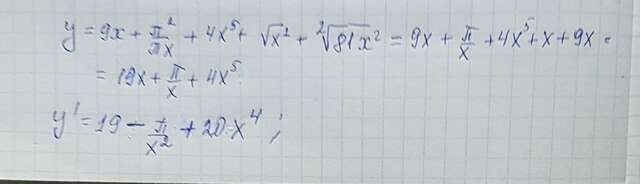 y = 9x + π²/πx + 4x⁵ + √x² + ²√81x² = 9x + π/x + 4x⁵ + x + 9x =
= 19x + π/x + 4x⁵.
y' = 19 - π/x² + 20·x⁴;